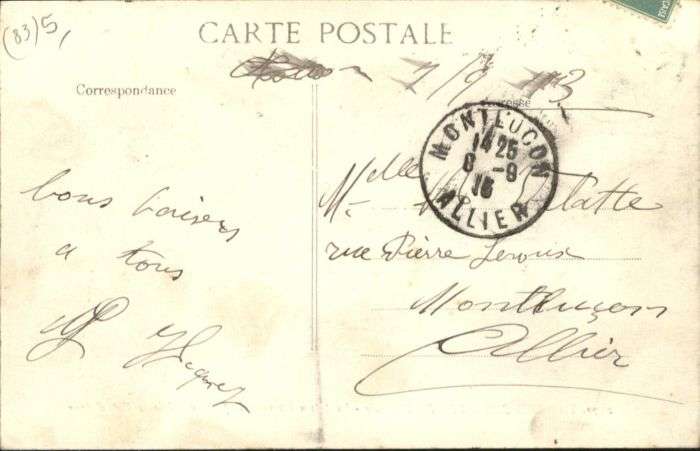 (83) 5,
CARTE POSTALE
Correspondance
Adresse
MONTLUÇON
14 25
8 -9
ALLIER
bons baisers
a tous
Mlle
rue Pierre Leroux
Montluçon
Allier